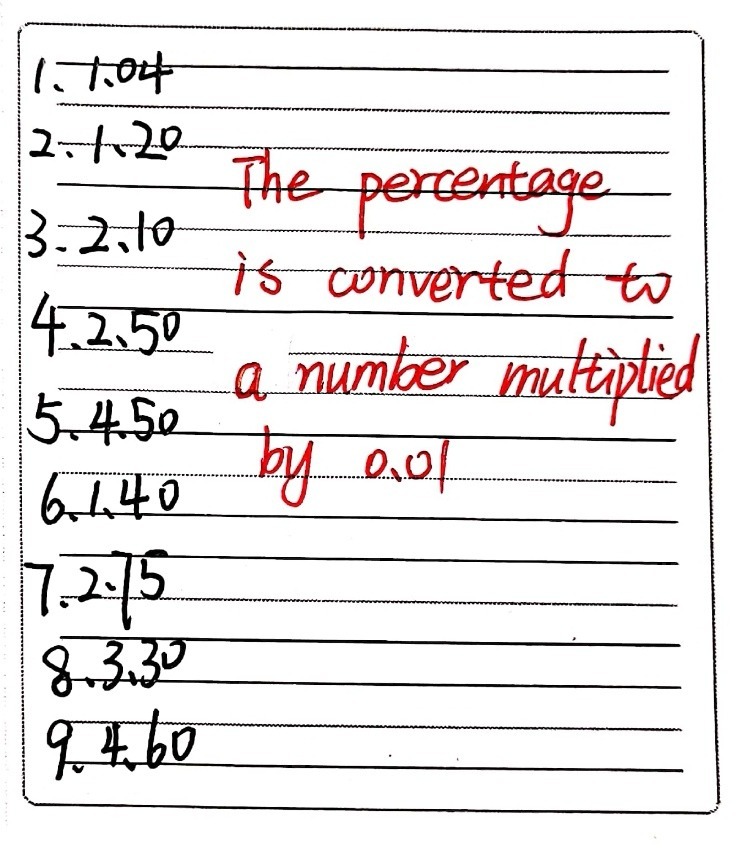 1. 1.04
2. 1.20
The percentage
3. 2.10
is converted to
4. 2.50
a number multiplied
5. 4.50
by 0.01
6. 1.40
7. 2.75
8. 3.30
9. 4.60